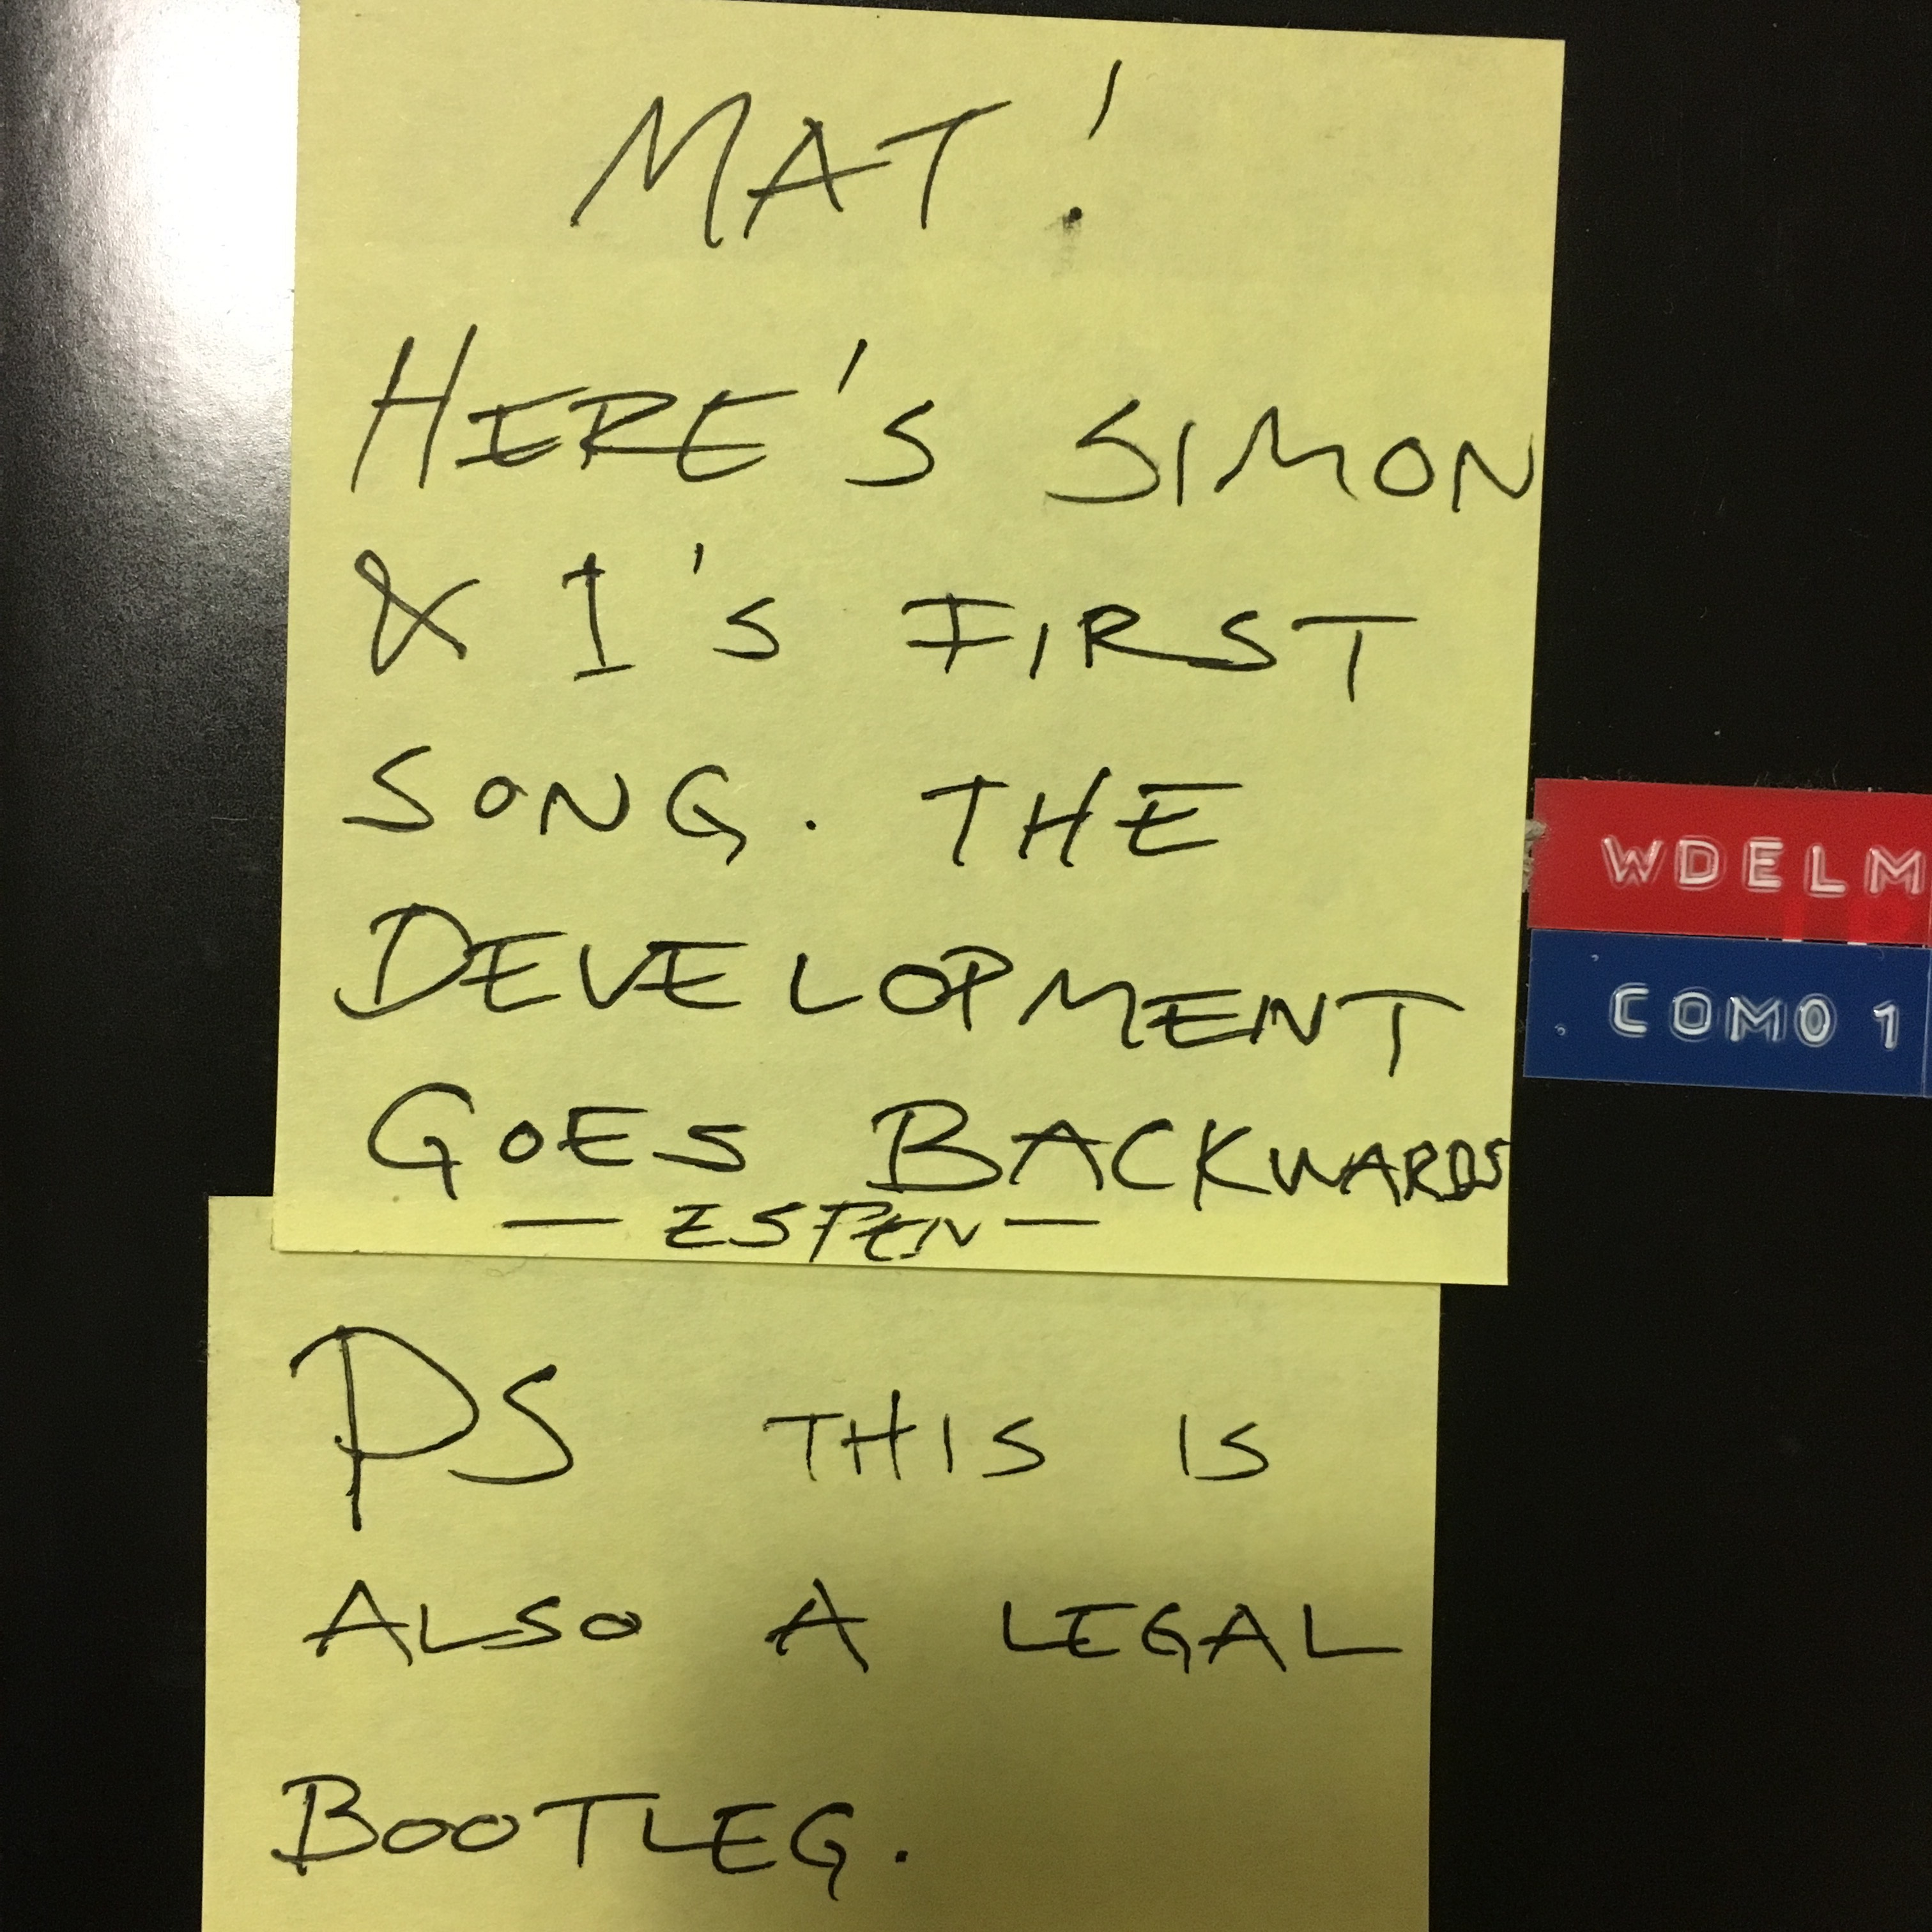 MAT!
HERE'S SIMON
& I'S FIRST
SONG. THE
DEVELOPMENT
GOES BACKWARDS
— ESPEN —
PS THIS IS
ALSO A LEGAL
BOOTLEG.
WDELM
COMO 1